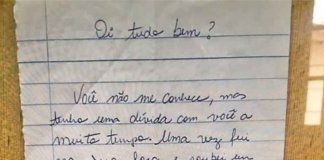 Oi tudo bem?
Você não me conhece, mas
tenho uma dívida com você a
muito tempo. Uma vez fui
sua casa e roubei um